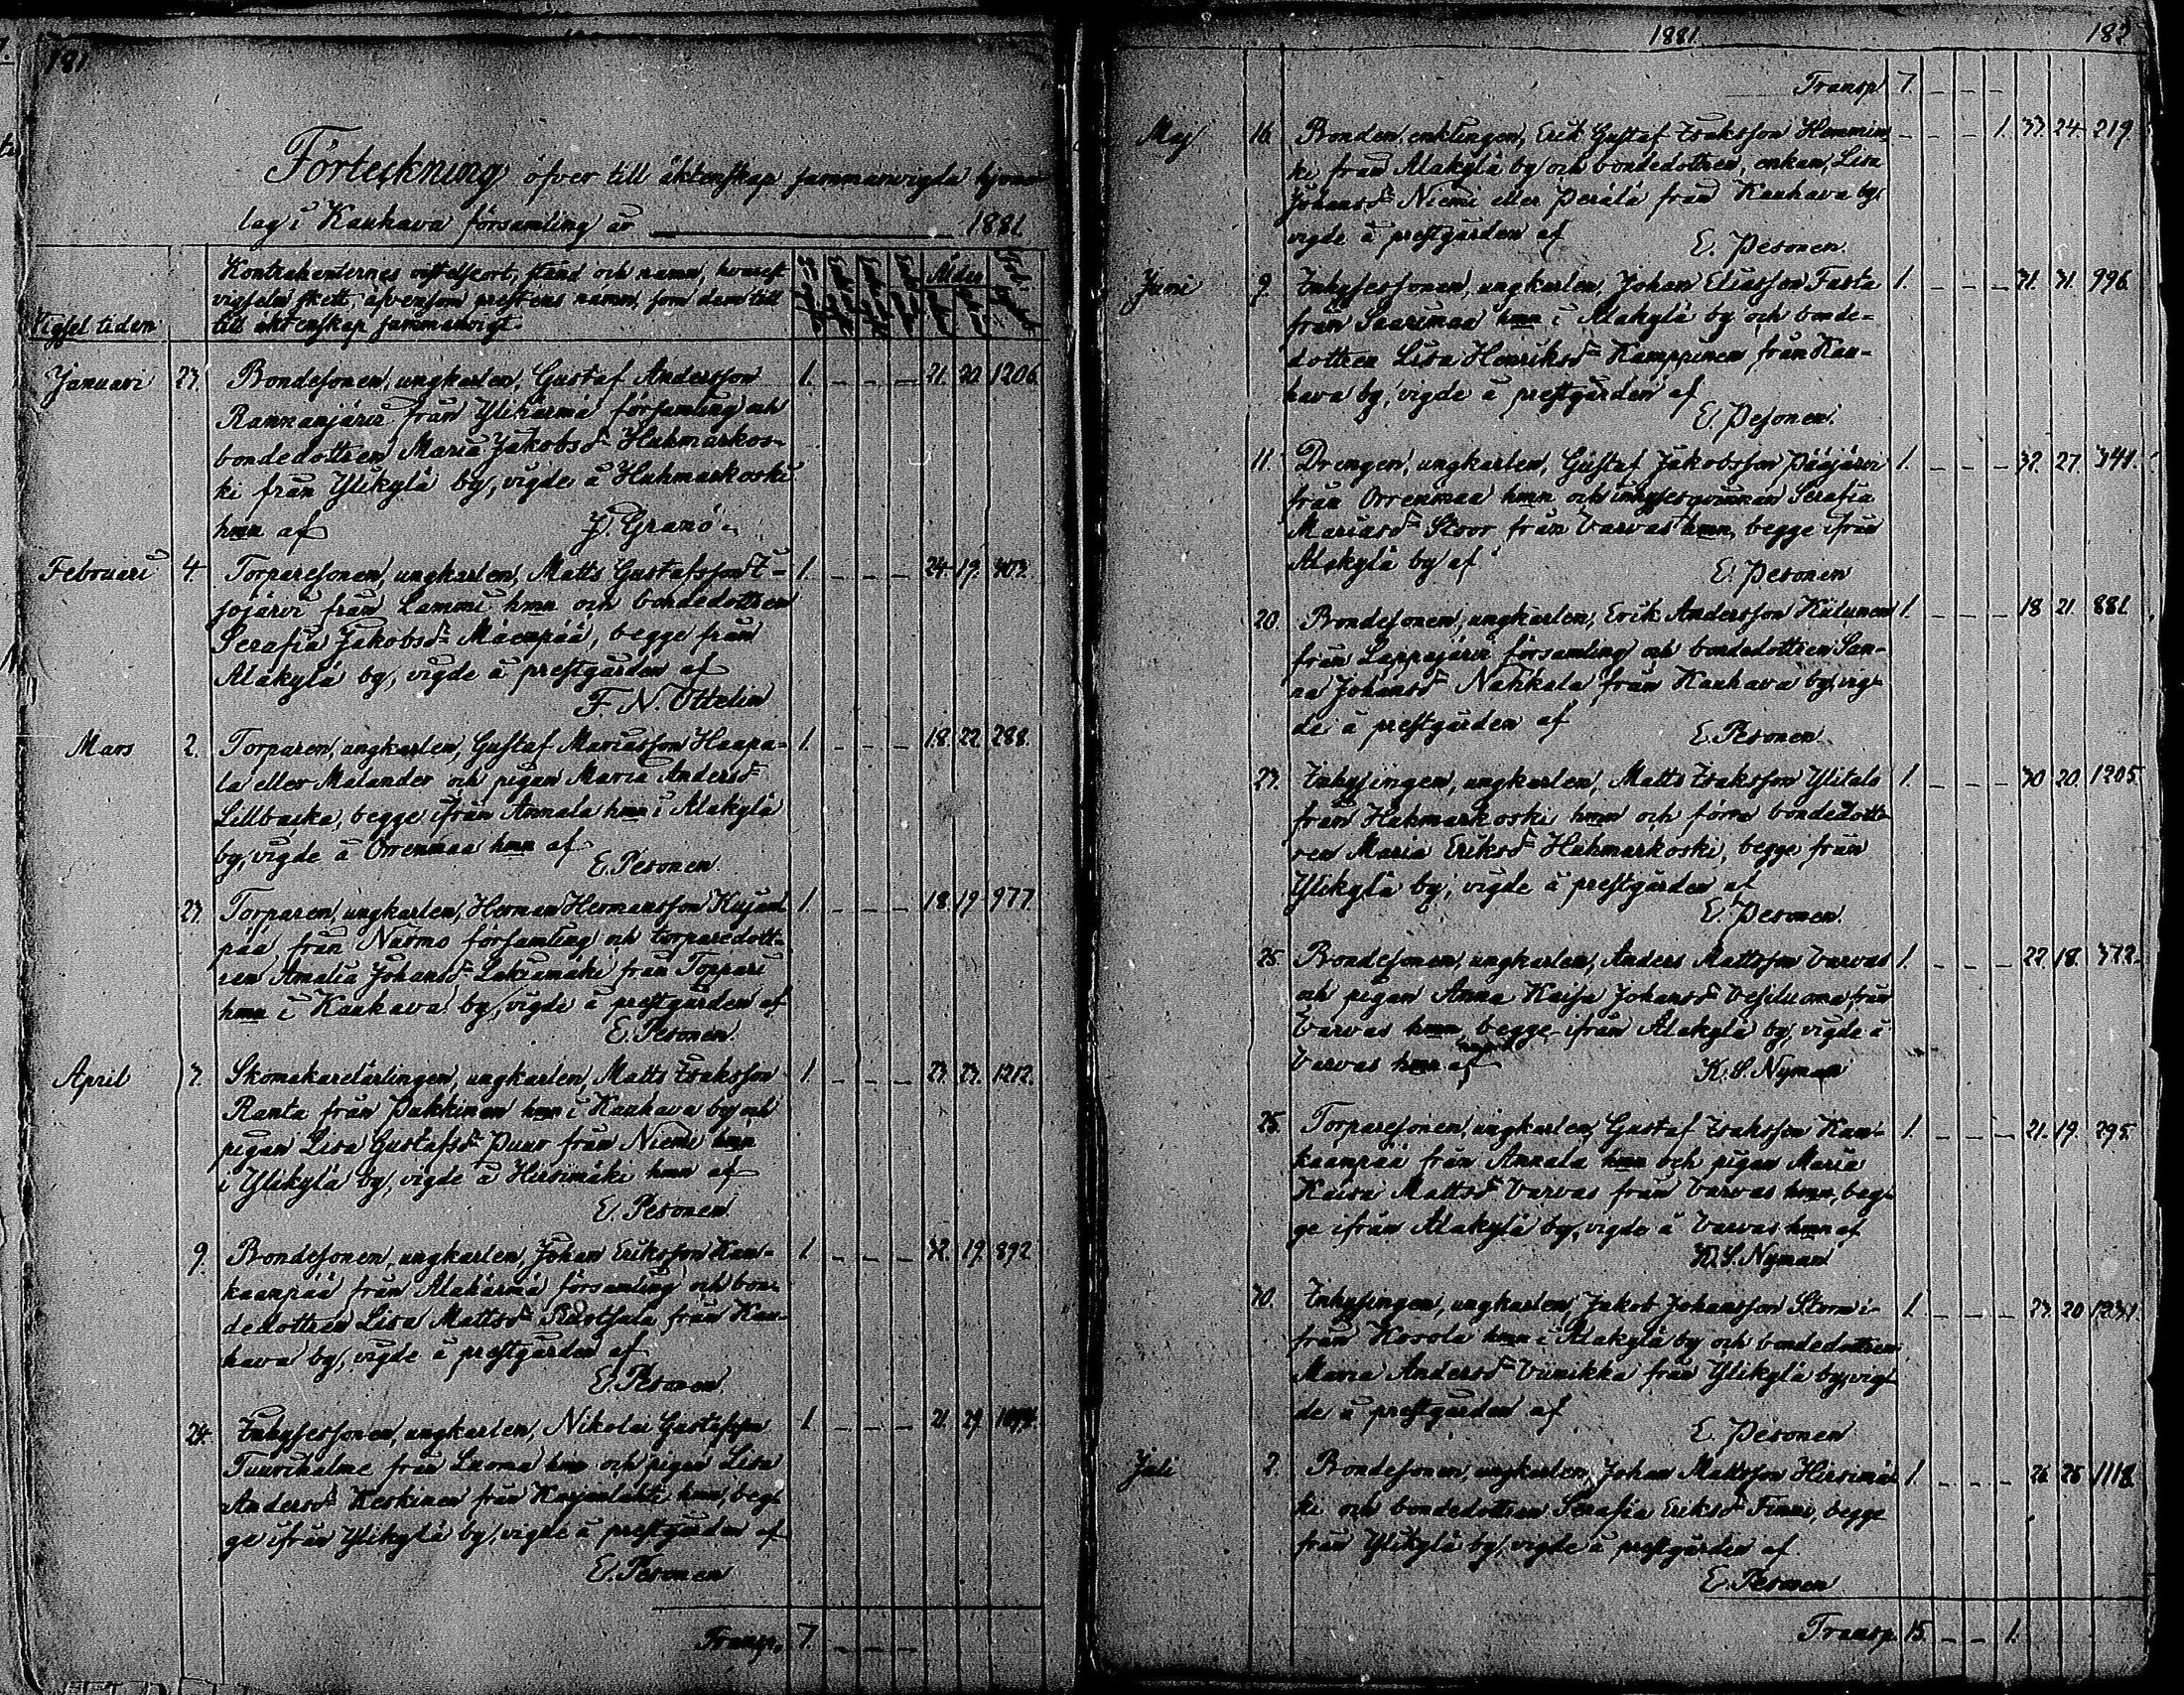 181
Förteckning öfver till äktenskap sammanvigda hjono-
lag i Kauhava församling år 1881
Vigsel tiden
Kontrahenternes vistelseort, stånd och namn, hvarest
vigseln skett, äfvensom prestens namn, som dem till
till äktenskap sammanvigt.
Ålder
Januari 27. Bondesonen, ungkarlen, Gustaf Andersson 1. - - - 21. 20. 1206.
Rannanjärvi från Ylihärmä församling och
bondedottren Maria Jakobsd:r Huhmarkos-
ki från Ylikylä by, vigde å Huhmarkoski
hmn af J. Granö.
Februari 4. Torparesonen, ungkarlen, Matts Gustafsson I- 1. - - - 24. 19.
sojärvi från Lammi hmn och bondedottren
Serafia Jakobsd:r Mäenpää, begge från
Alakylä by, vigde å prestgården af
F. N. Ottelin
Mars 2. Torparen, ungkarlen, Gustaf Mariasson Haapa- 1. - - - 18. 22. 288.
la eller Malander och pigan Maria Andersd:r
Lillbacka, begge ifrån Annala hmn i Alakylä
by, vigde å Orrenmaa hmn af
E. Pesonen.
27. Torparen, ungkarlen, Herman Hermansson Kujan- 1. - - - 18. 19. 977.
pää från Nurmo församling och torparedott-
ren Amalia Johansd:r Lakiamäki från Toppari
hmn i Kauhava by, vigde å prestgården af
E. Pesonen.
April 7. Skomakarelärlingen, ungkarlen, Matts Isaksson 1. - - - 27. 27. 1212.
Ranta från Pukkinen hmn i Kauhava by och
pigan Lisa Gustafsd:r Puur från Niemi hmn
i Ylikylä by, vigde å Hirsimäki hmn af
E. Pesonen
9. Bondesonen, ungkarlen, Johan Eriksson Kan- 1. - - - 32. 19. 892
kaanpää från Alahärmä församling och bon-
dedottren Lisa Mattsd:r från Kau-
hava by, vigde å prestgården af
E. Pesonen.
24. Inhysessonen, ungkarlen, Nikolai Gustafsson 1. - - - 21. 29.
Tuurihalme från Luoma hmn och pigan Lisa
Andersd:r Keskinen från Karjanlahti hmn, beg-
ge ifrån Ylikylä by, vigde å prestgården af
E. Pesonen
Transp. 7. - - -
1881 182
Transp 7. - - -
Maj 16. Bonden, enklingen, Erik Gustaf Isaksson Hemmin- - - - 1. 37. 24. 219.
ki från Alakylä by och bondedottren, enkan, Lisa
Johansd:r Niemi eller Perälä från Kauhava by
vigde å prestgården af E. Pesonen.
Juni 9. Inhysessonen, ungkarlen, Johan Eliasson Fasta 1. - - - 31. 31. 996.
från Saarimaa hmn i Alakylä by och bonde-
dottren Lisa Henriksd:r Kamppinen från Kau-
hava by, vigde å prestgården af
E. Pesonen.
11. Drengen, ungkarlen, Gustaf Jakobsson Pääjärvi 1. - - - 32. 27. 341.
från Orrenmaa hmn och inhysesqvinnan Serafia
Mariasd:r Stoor från Varvas hmn, begge ifrån
Alakylä by af
E. Pesonen
20. Bondesonen, ungkarlen, Erik Andersson Kiilunen 1. - - - 18 21. 881.
från Lappajärvi församling och bondedottren San-
na Johansd:r Nahkala från Kauhava by, vig-
de å prestgården af E. Pesonen.
27. Inhysingen, ungkarlen, Matts Isaksson Ylitalo 1. - - - 30 20. 1205.
från Huhmarkoski hmn och förra bondedott-
ren Maria Eriksd:r Huhmarkoski, begge från
Ylikylä by, vigde å prestgården af
E. Pesonen.
25. Bondesonen, ungkarlen, Anders Mattsson Varvas 1. - - - 22. 18. 372.
och pigan Anna Kaisa Johansd:r Vesiluoma från
Varvas hmn, begge ifrån Alakylä by, vigde å
Varvas hmn af K. S. Nyman
25. Torparesonen, ungkarlen, Gustaf Isaksson Kan- 1. - - - 21. 19. 295.
kaanpää från Annala hmn och pigan Maria
Kaisa Mattsd:r Varvas från Varvas hmn, beg-
ge ifrån Alakylä by, vigde å Varvas hmn af
K. S. Nyman
30. Inhysingen, ungkarlen, Jakob Johansson Storm i- 1. - - - 27. 20
från Kosola hmn i Alakylä by och bondedottren
Maria Andersd:r Viinikka från Ylikylä by, vig-
de å prestgården af
E. Pesonen
Juli 2. Bondesonen, ungkarlen, Johan Mattsson Hirsimä- 1. - - - 26 25 1118.
ki och bondedottren Serafia Eriksd:r Finni, begge
från Ylikylä by, vigde å prestgården af
E. Pesonen
Transp 15. - - 1.